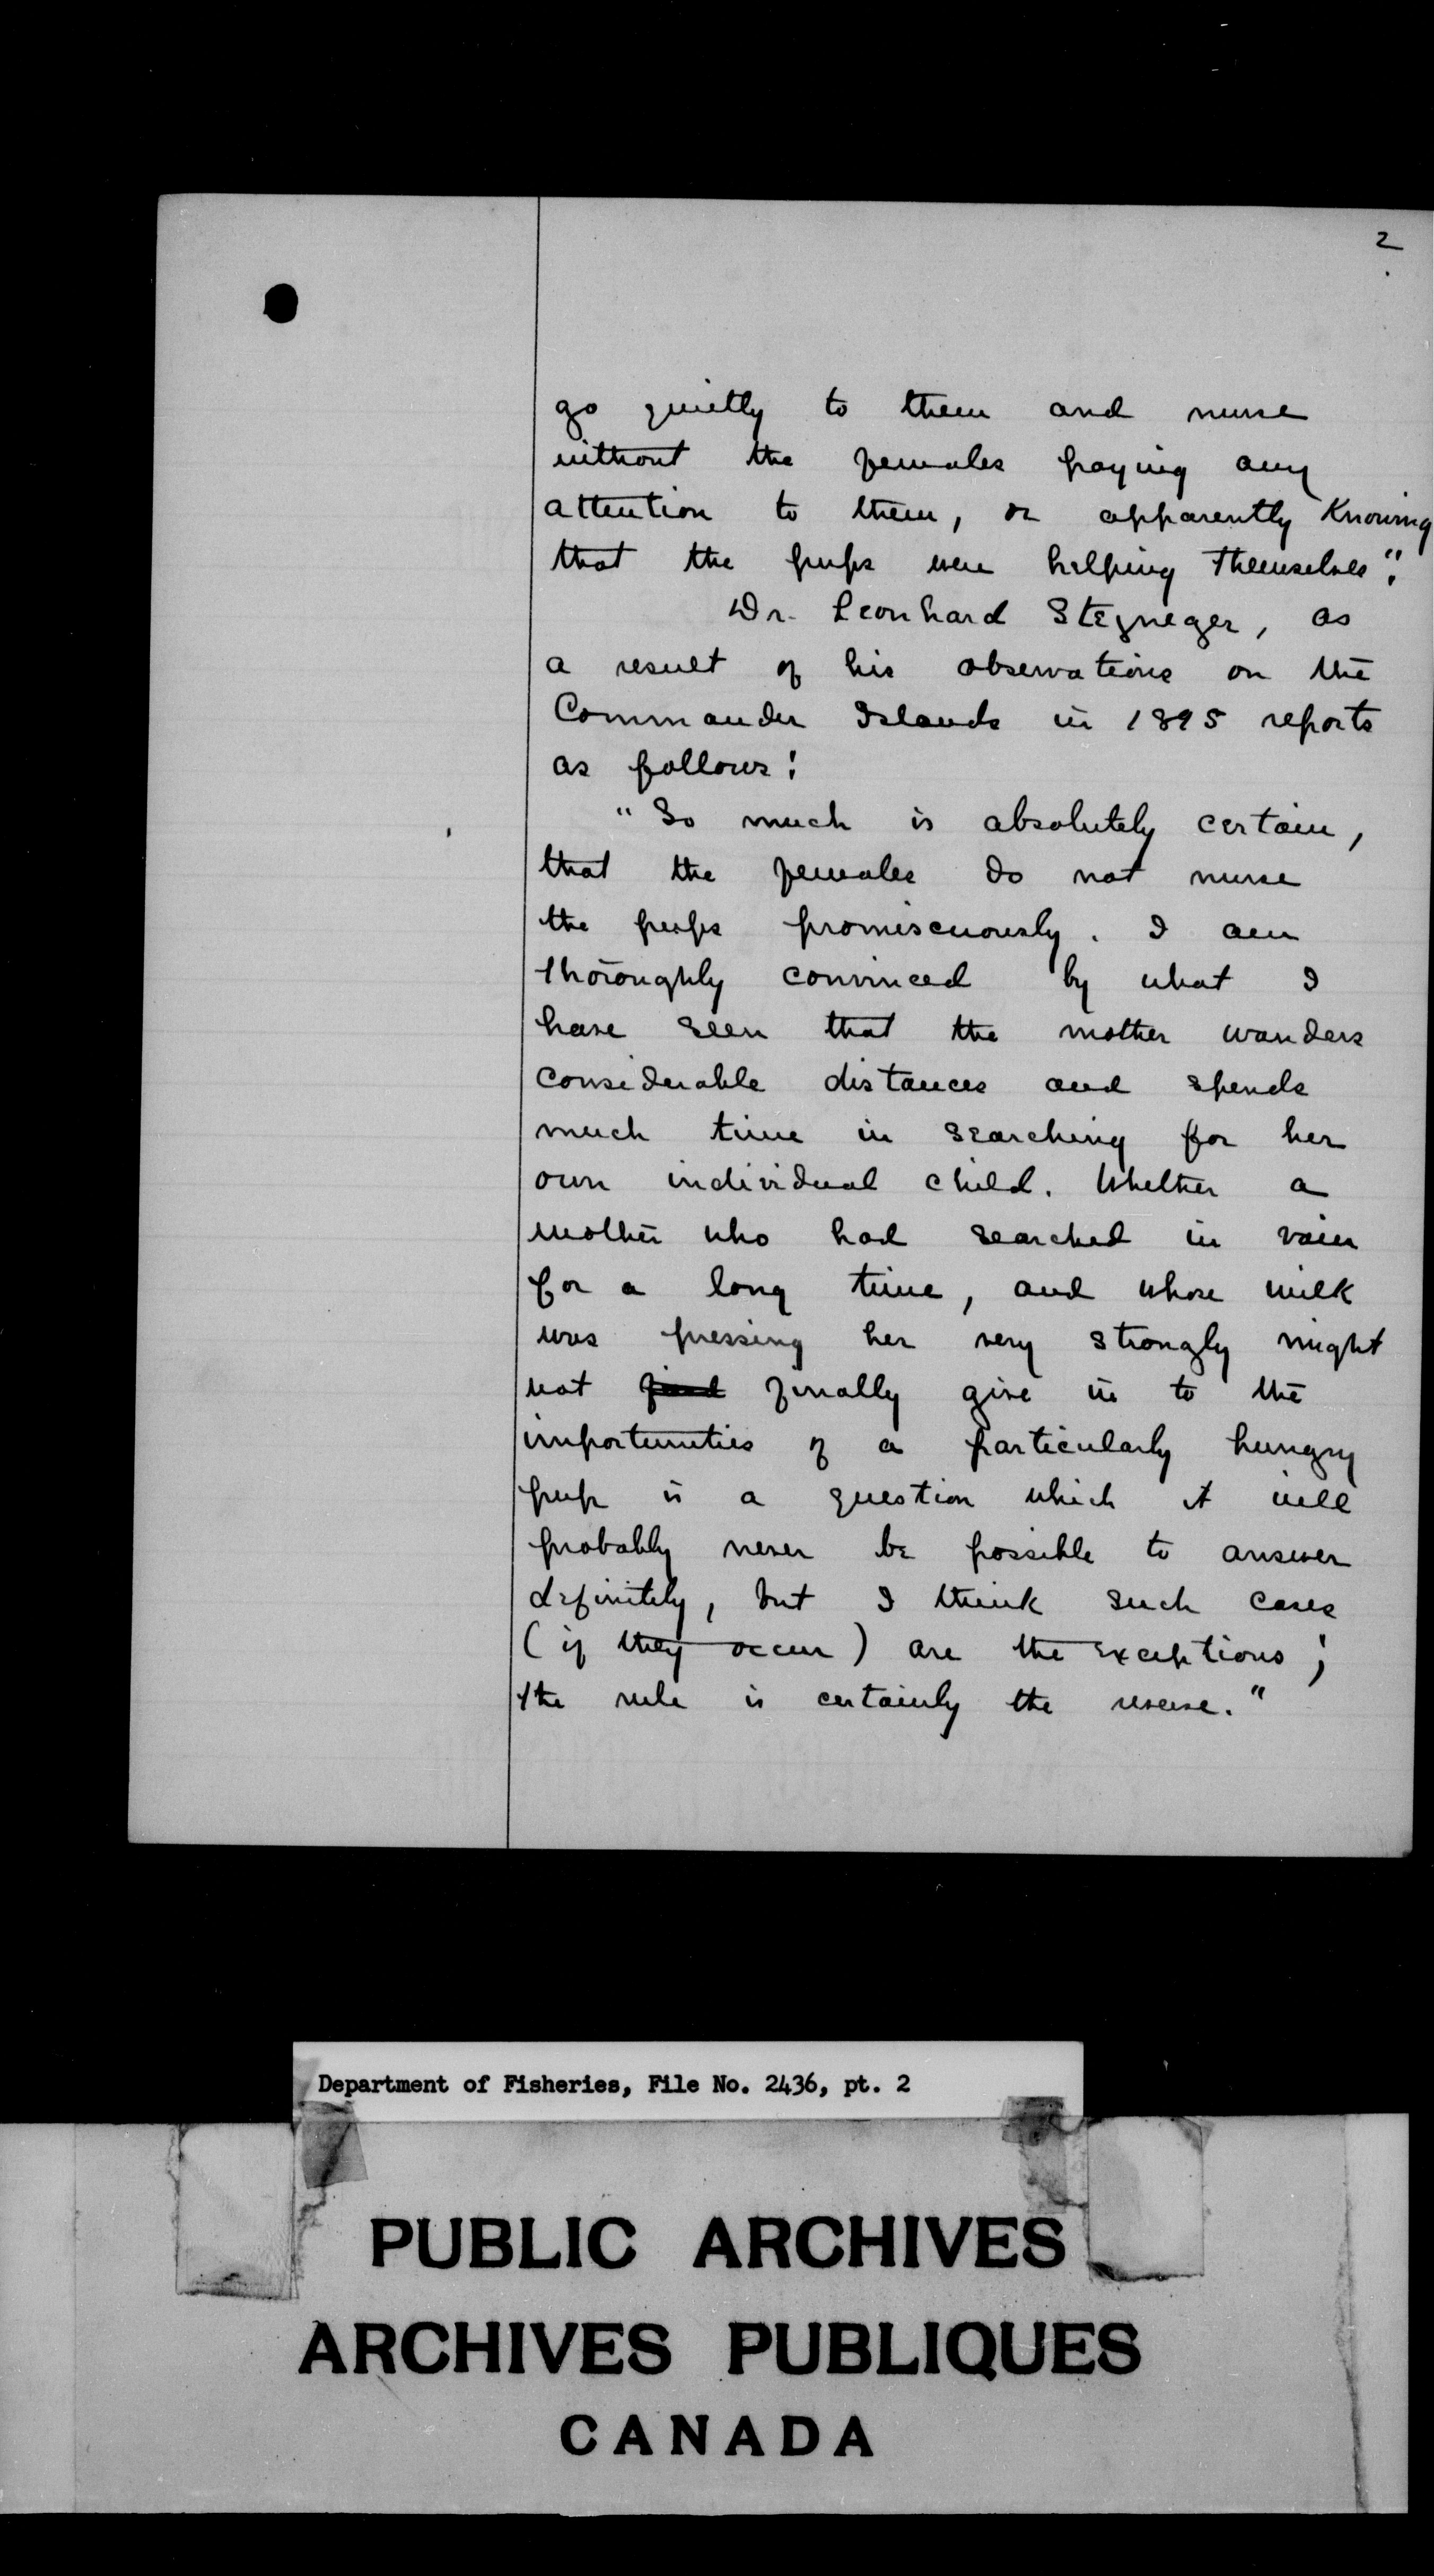 2
go quietly to them and nurse
without the females paying any
attention to them, or apparently knowing
that the pups were helping themselves".
Dr. Leonhard Stejneger, as
a result of his observations on the
Commander Islands in 1895 reports
as follows:
"So much is absolutely certain,
that the females do not nurse
the pups promiscuously. I am
thoroughly convinced by what I
have seen that the mother wanders
considerable distances and spends
much time in searching for her
own individual child. Whether a
mother who had searched in vain
for a long time, and whose milk
was pressing her very strongly might
not finally give in to the
importunities of a particularly hungry
pup is a question which it will
probably never be possible to answer
definitely, but I think such cases
(if they occur) are the exceptions;
the rule is certainly the reverse."
Department of Fisheries, File No. 2436, pt. 2
PUBLIC ARCHIVES
ARCHIVES PUBLIQUES
CANADA